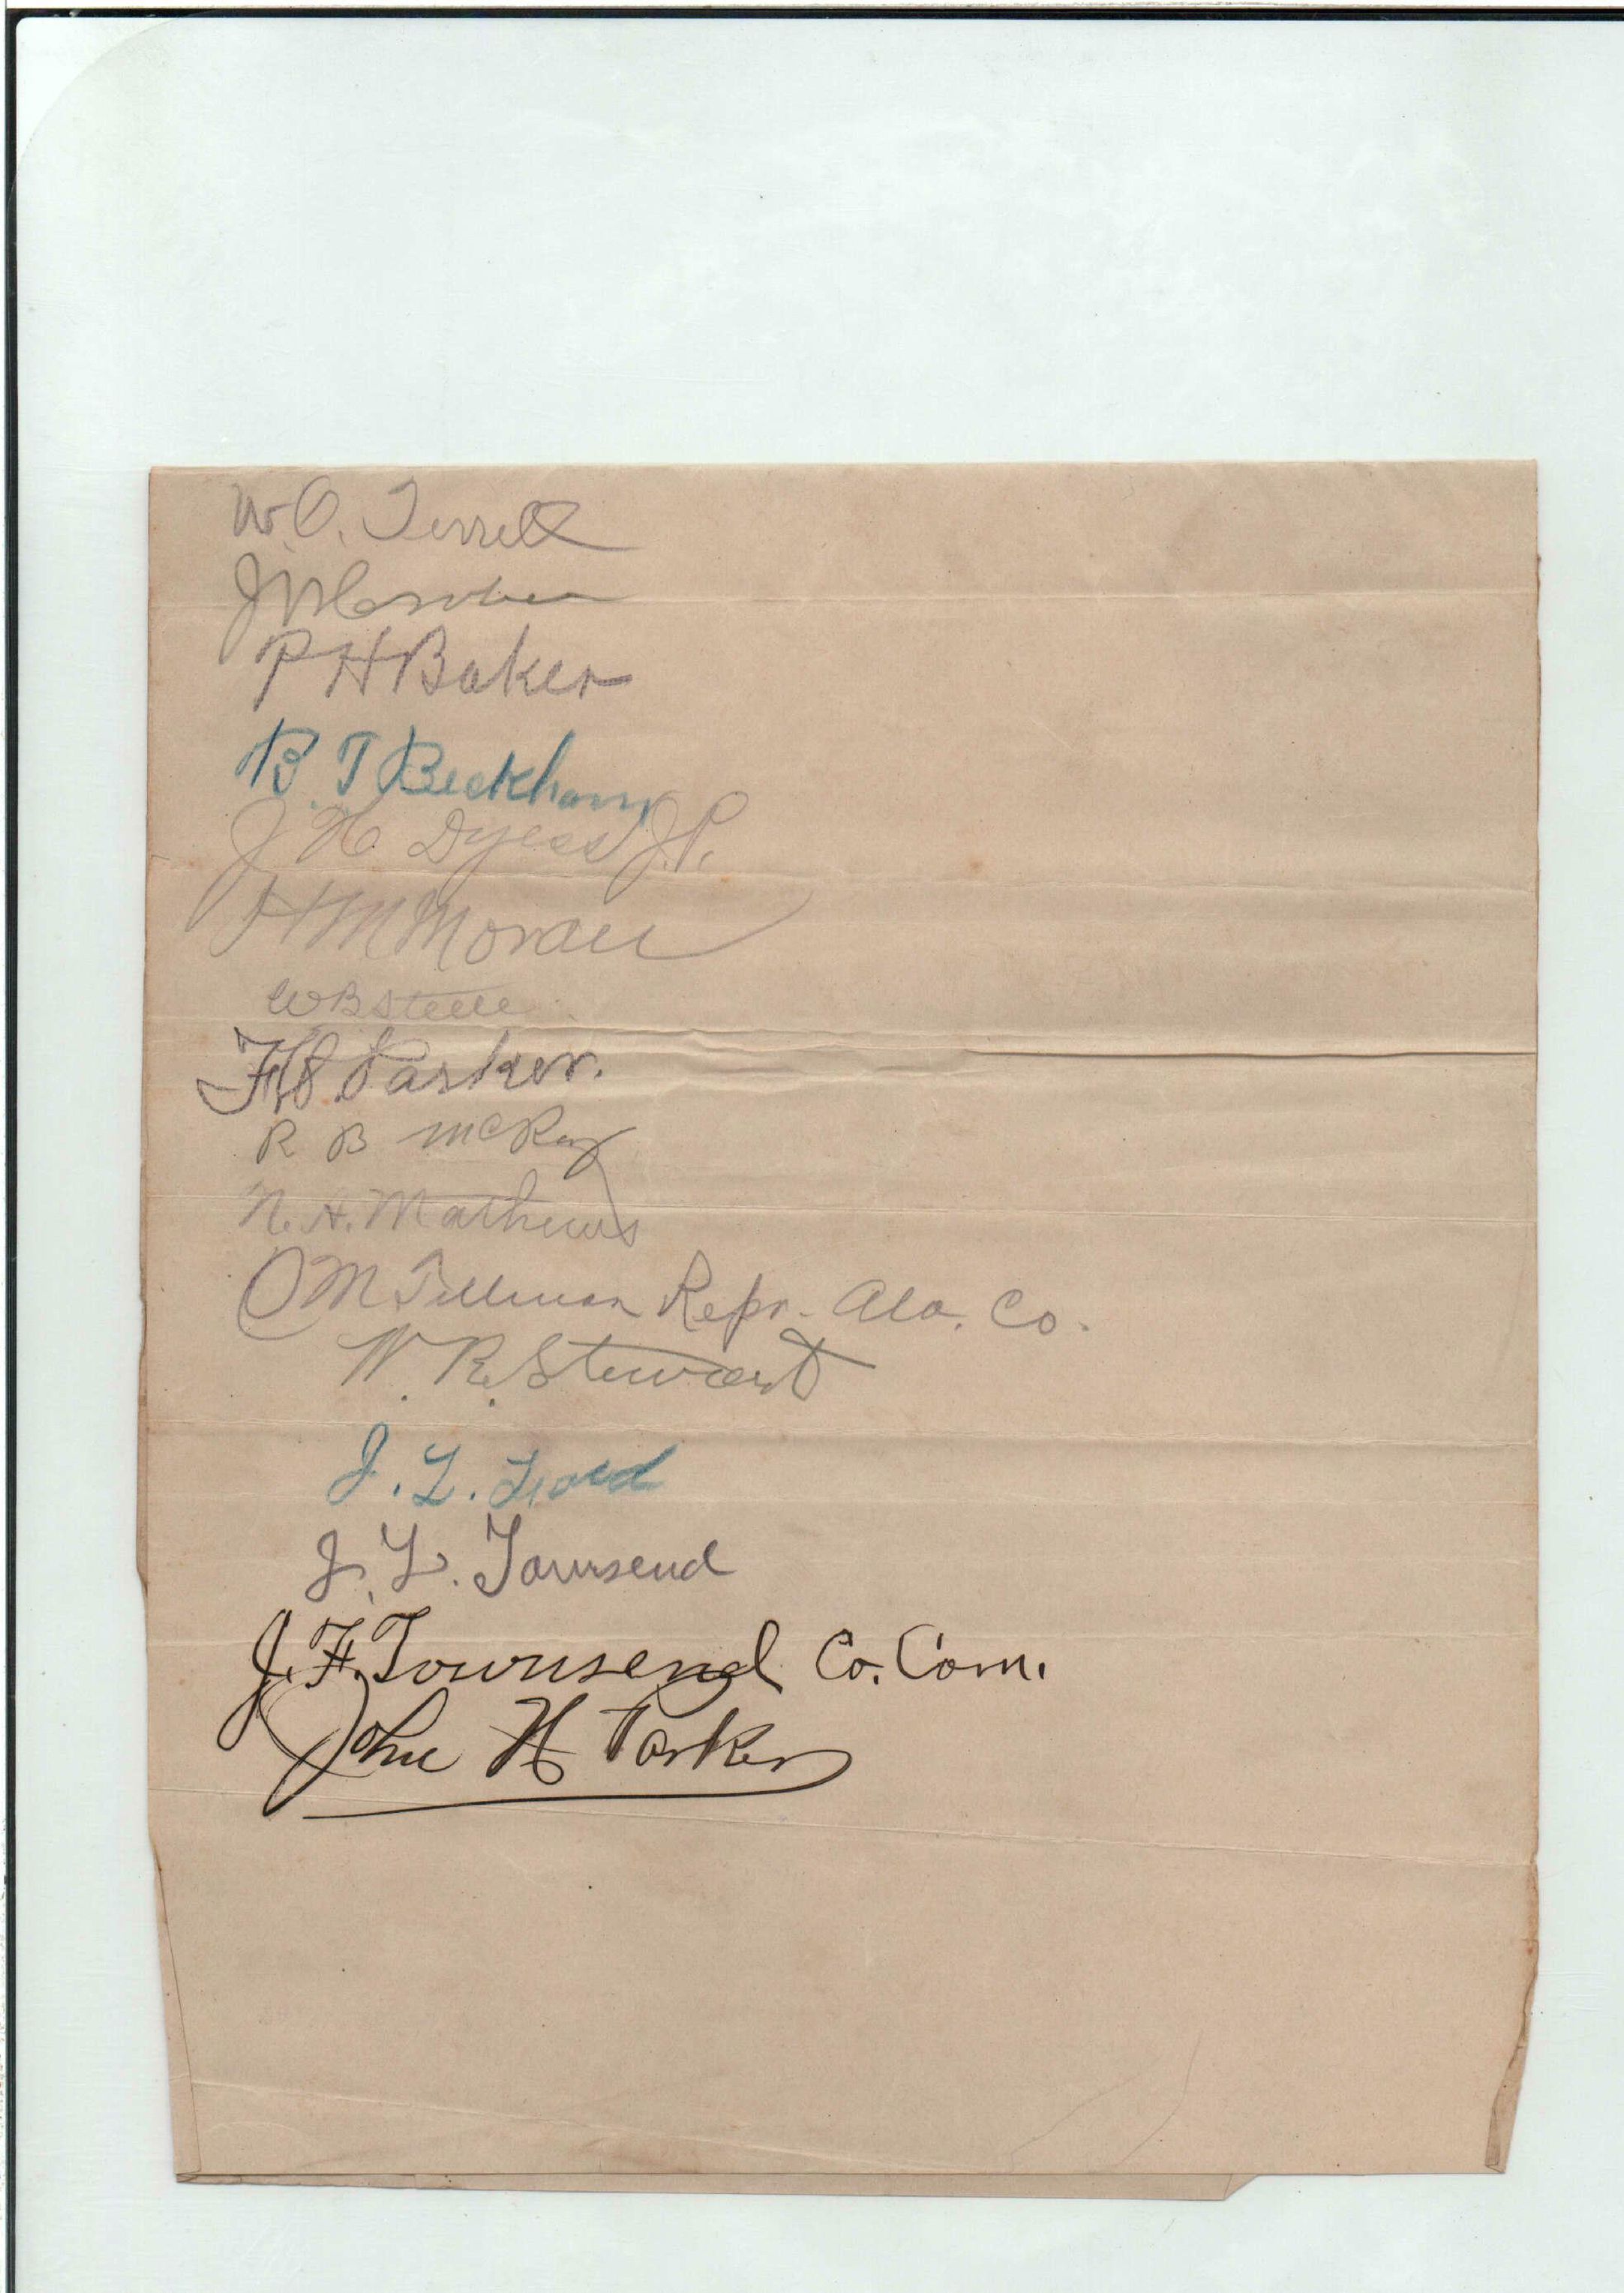 W. O. Terrell
P H Baker
B. T Beckham
J H Dyess J.P.
H M Moran
W B Steele
Parker.
R B McRay
N. H. Mathews
C M Tillman Repr. Ala. Co.
W. R. Stewart
J. L.
J. L. Townsend
J. F. Townsend Co. Com.
John H Parker